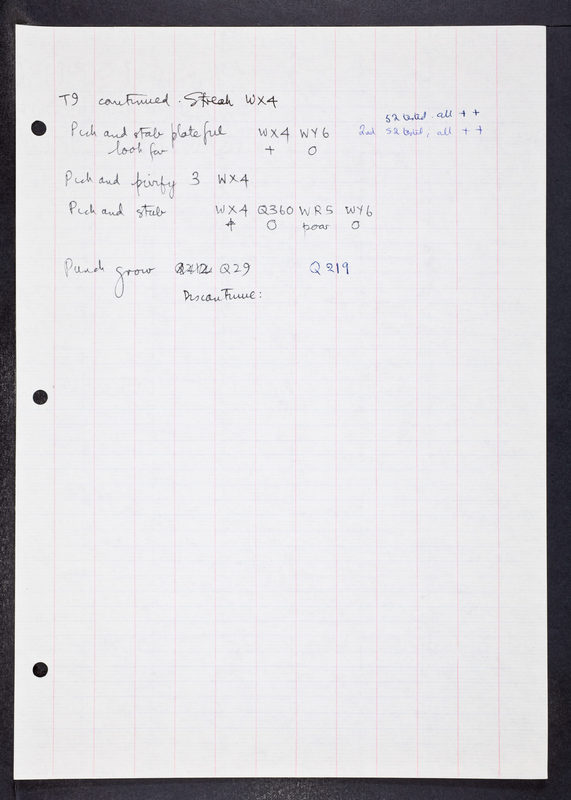 T9 continued. Streak WX4
52 tested. all + +
Pick and stab plateful WX4 WY6 2nd 52 tested, all + +
look for + O
Pick and purify 3 WX4
Pick and stab WX4 Q360 WR5 WY6
+ O poor O
Pick grow Q29 Q219
Discontinue: